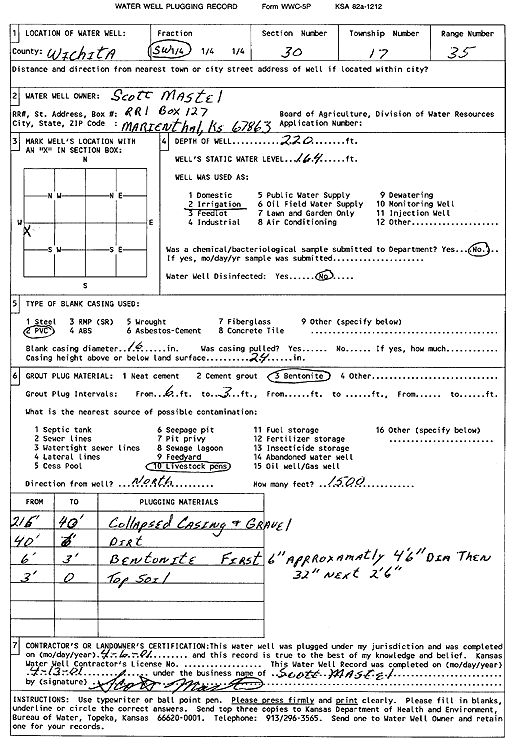 WATER WELL PLUGGING RECORD Form WWC-5P KSA 82a-1212
1 LOCATION OF WATER WELL: Fraction Section Number Township Number Range Number
County: Wichita SW 1/4 1/4 1/4 30 17 35
Distance and direction from nearest town or city street address of well if located within city?
2 WATER WELL OWNER: Scott Mastel
RR#, St. Address, Box #: RR1 Box 127 Board of Agriculture, Division of Water Resources
City, State, ZIP Code : Marienthal, Ks 67863 Application Number:
3 MARK WELL'S LOCATION WITH AN "X" IN SECTION BOX:
N
N W N E
W X E
S W S E
S
4 DEPTH OF WELL 220 ft.
WELL'S STATIC WATER LEVEL 164 ft.
WELL WAS USED AS:
1 Domestic 5 Public Water Supply 9 Dewatering
2 Irrigation 6 Oil Field Water Supply 10 Monitoring Well
3 Feedlot 7 Lawn and Garden Only 11 Injection Well
4 Industrial 8 Air Conditioning 12 Other
Was a chemical/bacteriological sample submitted to Department? Yes No
If yes, mo/day/yr sample was submitted
Water Well Disinfected: Yes No
5 TYPE OF BLANK CASING USED:
1 Steel 3 RMP (SR) 5 Wrought 7 Fiberglass 9 Other (specify below)
2 PVC 4 ABS 6 Asbestos-Cement 8 Concrete Tile
Blank casing diameter 16 in. Was casing pulled? Yes No If yes, how much
Casing height above or below land surface 24 in.
6 GROUT PLUG MATERIAL: 1 Neat cement 2 Cement grout 3 Bentonite 4 Other
Grout Plug Intervals: From 6 ft. to 3 ft., From ft. to ft., From to ft.
What is the nearest source of possible contamination:
1 Septic tank 6 Seepage pit 11 Fuel storage 16 Other (specify below)
2 Sewer lines 7 Pit privy 12 Fertilizer storage
3 Watertight sewer lines 8 Sewage lagoon 13 Insecticide storage
4 Lateral lines 9 Feedyard 14 Abandoned water well
5 Cess Pool 10 Livestock pens 15 Oil well/Gas well
Direction from well? North How many feet? 1500
FROM TO PLUGGING MATERIALS
216' 40' Collapsed Casing + Gravel
40' 6' Dirt
6' 3' Bentonite First 6" Approxamatly 4'6" Dia Then
32" Next 2'6"
3' 0 Top Soil
7 CONTRACTOR'S OR LANDOWNER'S CERTIFICATION: This water well was plugged under my jurisdiction and was completed
on (mo/day/year) 4-6-01 and this record is true to the best of my knowledge and belief. Kansas
Water Well Contractor's License No. This Water Well Record was completed on (mo/day/year)
4-13-01 under the business name of Scott Mastel
by (signature) Scott Mastel
INSTRUCTIONS: Use typewriter or ball point pen. Please press firmly and print clearly. Please fill in blanks,
underline or circle the correct answers. Send top three copies to Kansas Department of Health and Environment,
Bureau of Water, Topeka, Kansas 66620-0001. Telephone: 913/296-3565. Send one to Water Well Owner and retain
one for your records.